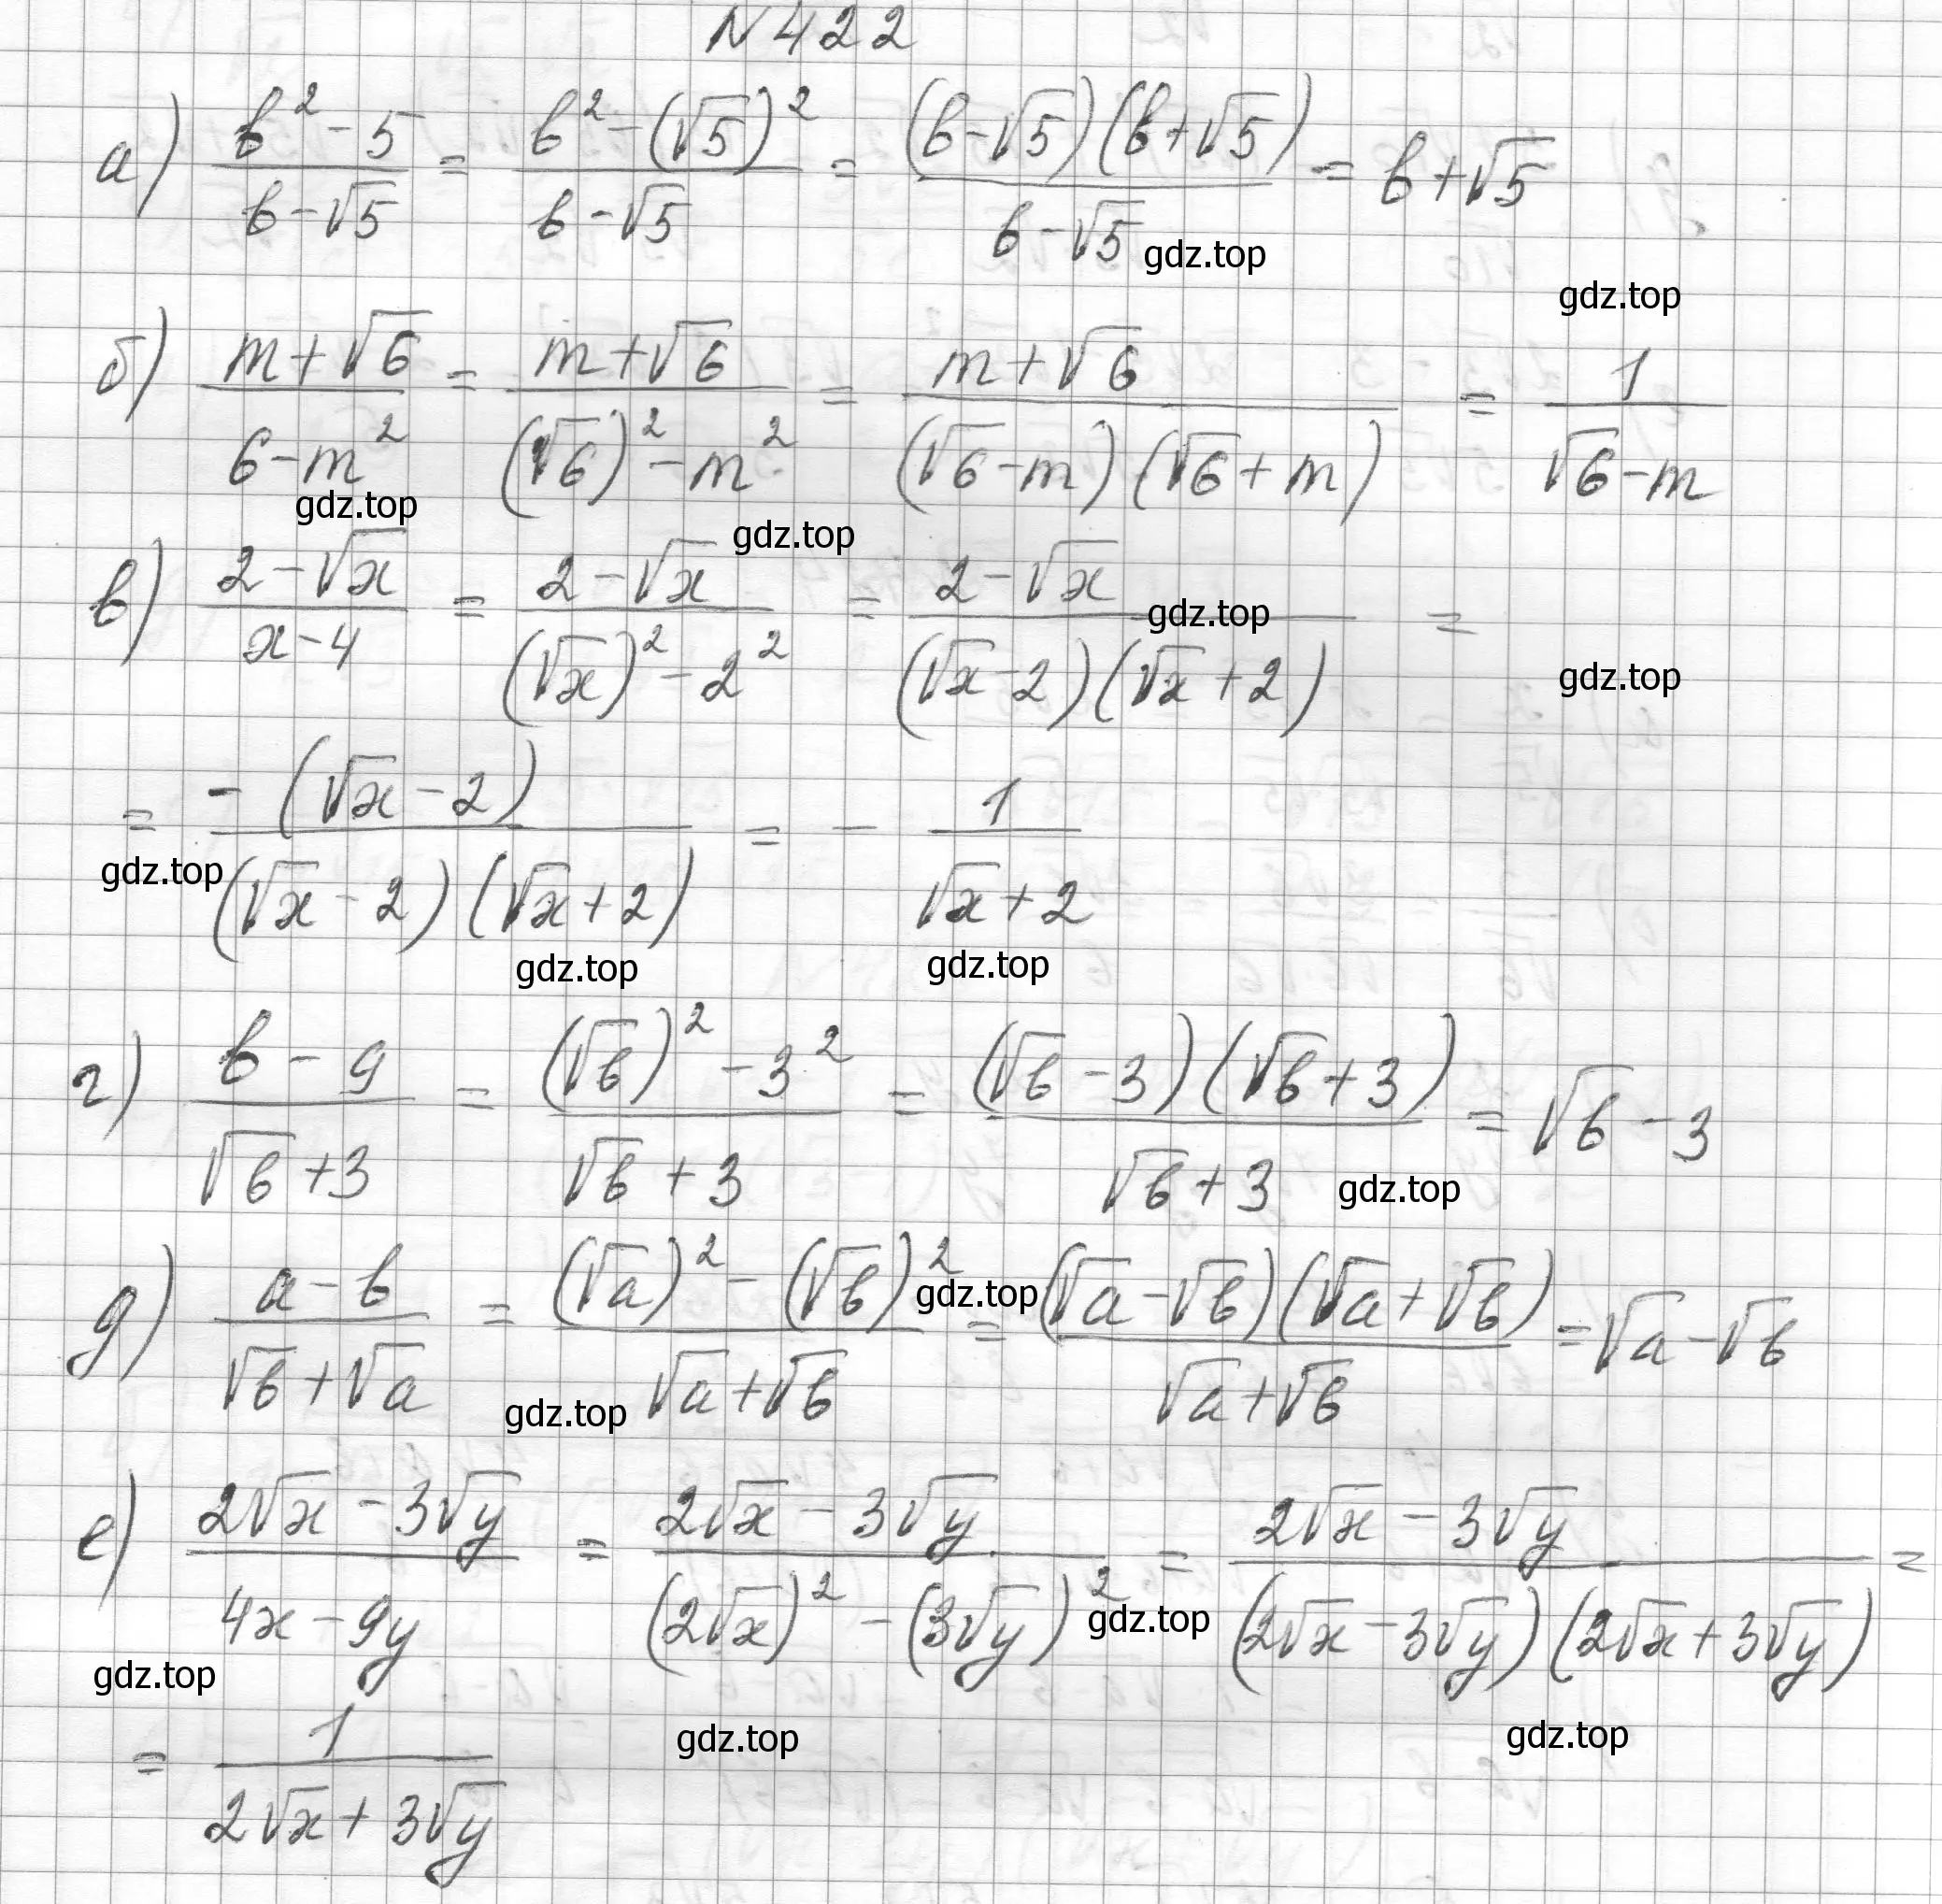 N 422
а) (b² - 5)/(b - √5) = (b² - (√5)²)/(b - √5) = ((b - √5)(b + √5))/(b - √5) = b + √5
gdz.top
gdz.top
б) (m + √6)/(6 - m²) = (m + √6)/((√6)² - m²) = (m + √6)/((√6 - m)(√6 + m)) = 1/(√6 - m)
gdz.top
gdz.top
в) (2 - √x)/(x - 4) = (2 - √x)/((√x)² - 2²) = (2 - √x)/((√x - 2)(√x + 2)) =
gdz.top
gdz.top
= (-(√x - 2))/((√x - 2)(√x + 2)) = - 1/(√x + 2)
gdz.top
gdz.top
gdz.top
г) (b - 9)/(√b + 3) = ((√b)² - 3²)/(√b + 3) = ((√b - 3)(√b + 3))/(√b + 3) = √b - 3
gdz.top
д) (a - b)/(√b + √a) = ((√a)² - (√b)²)/(√a + √b) = ((√a - √b)(√a + √b))/(√a + √b) = √a - √b
gdz.top
gdz.top
е) (2√x - 3√y)/(4x - 9y) = (2√x - 3√y)/((2√x)² - (3√y)²) = (2√x - 3√y)/((2√x - 3√y)(2√x + 3√y)) =
gdz.top
gdz.top
= 1/(2√x + 3√y)
gdz.top
gdz.top